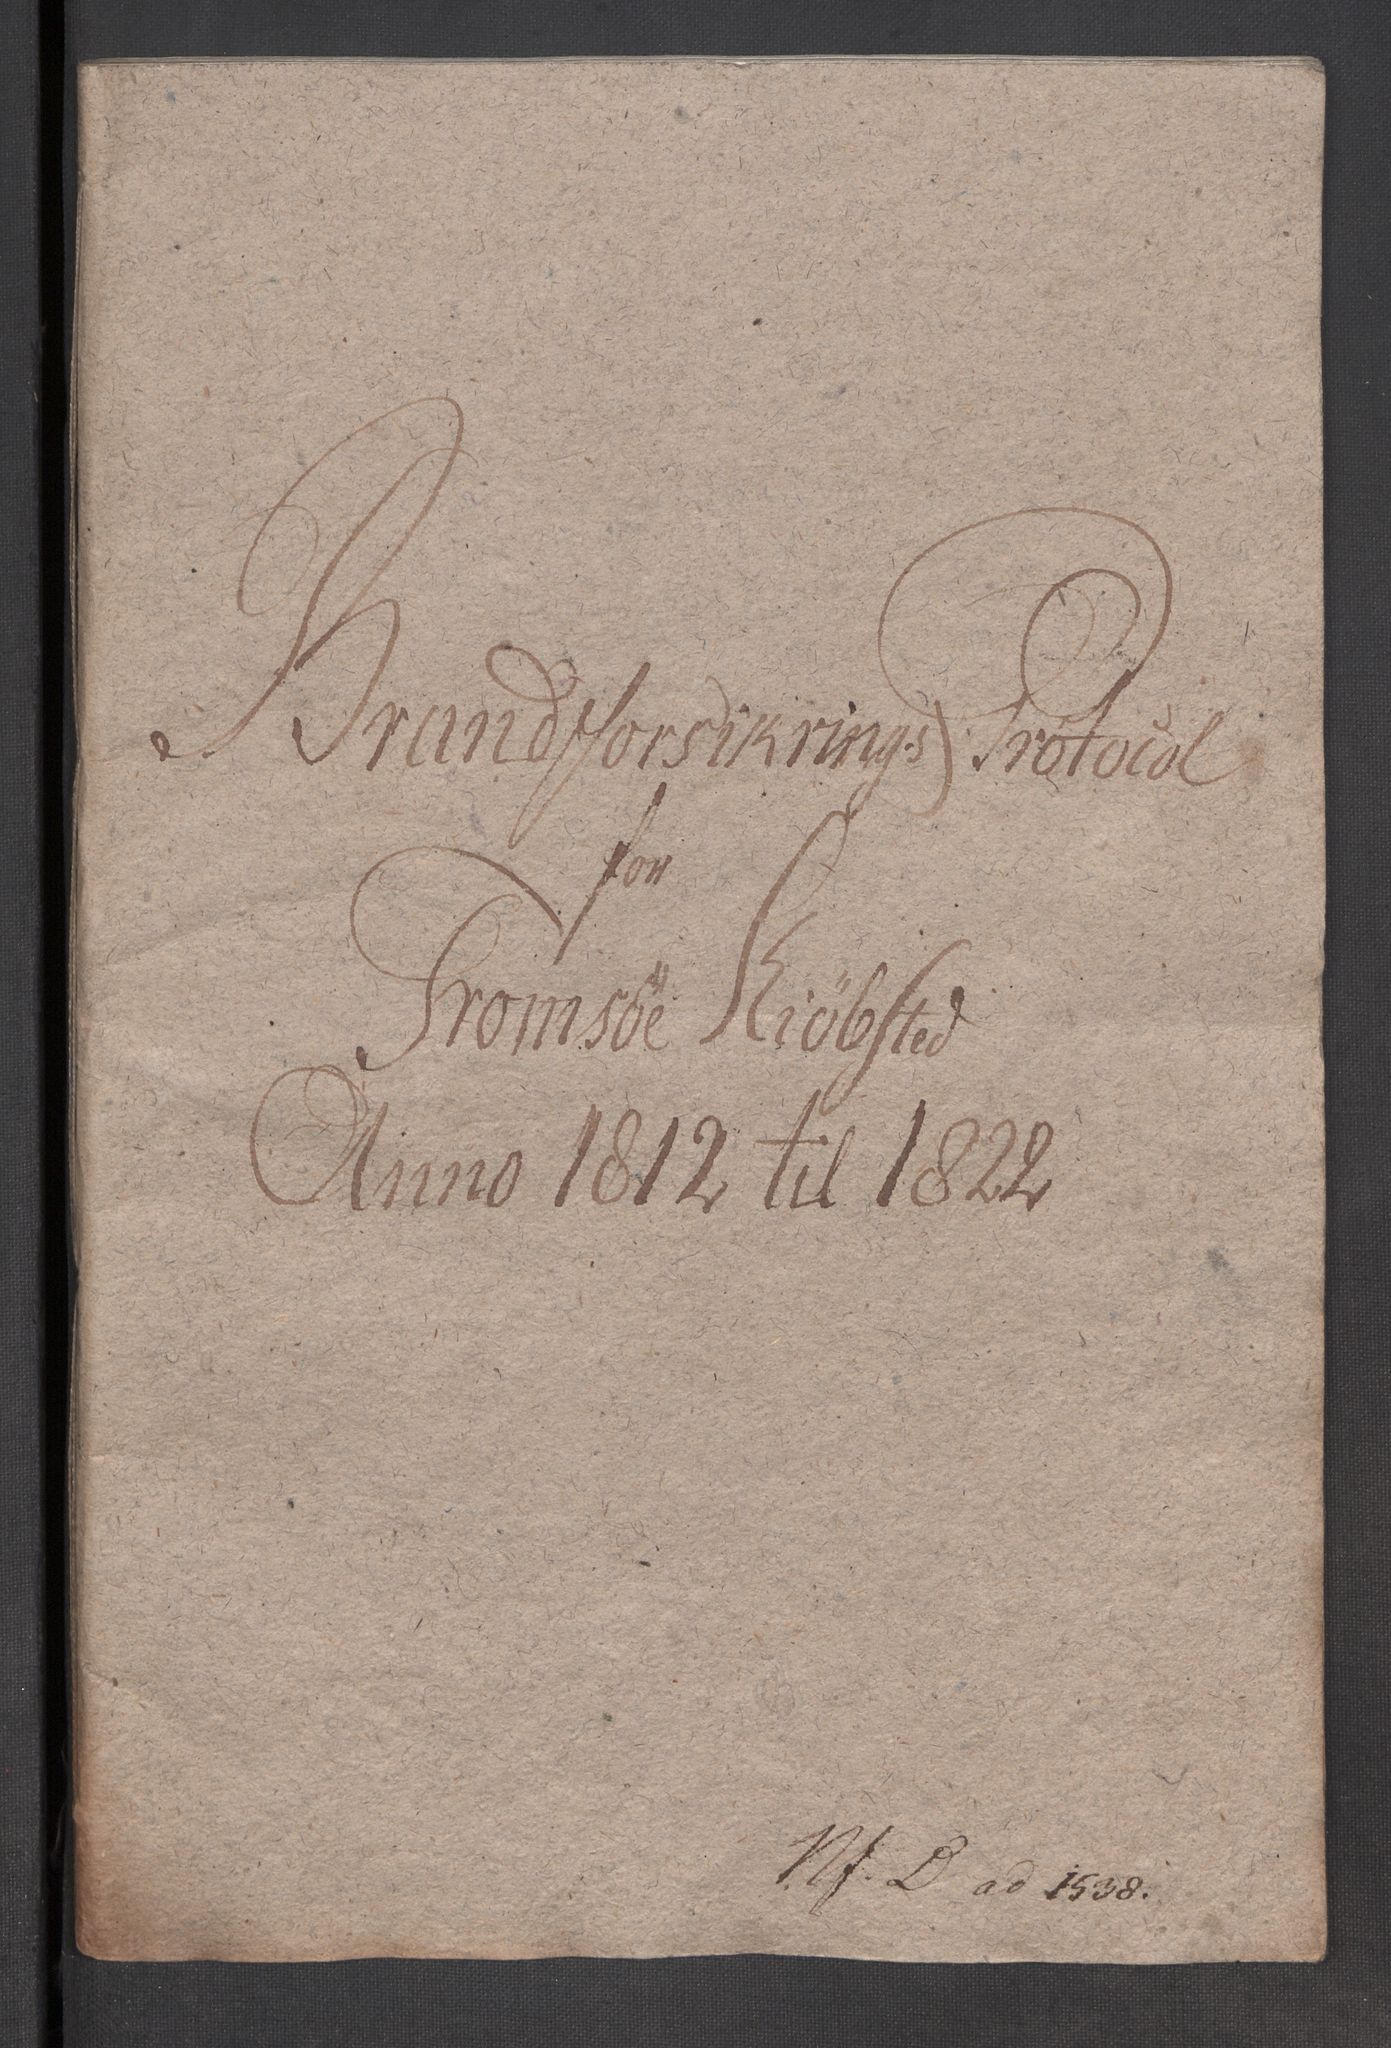 Brandforsikrings Protocol
for
Tromsöe Kiöbsted
Anno 1812 til 1822
Nf. D ad 1538.